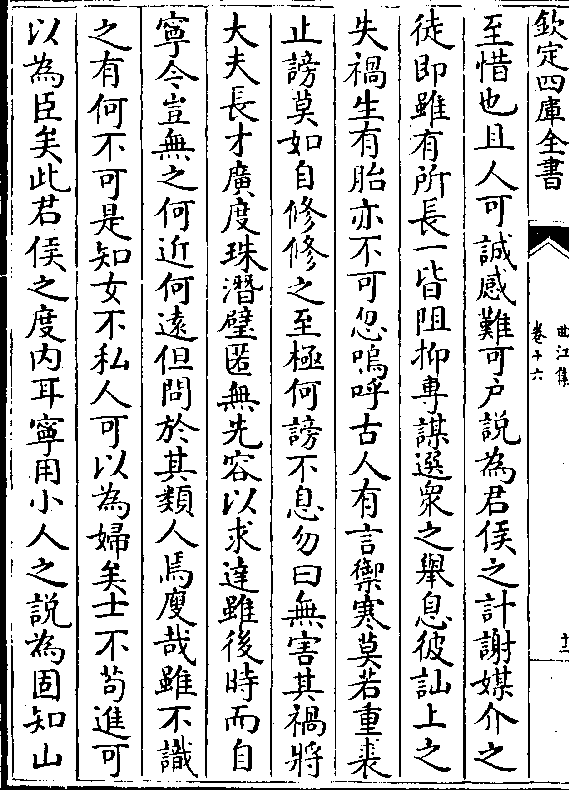 欽定四庫全書
曲江集
卷十六
十二
至惜也且人可誠感難可戶說為君侯之計謝媒介之
徒即雖有所長一皆阻抑專謀選衆之舉息彼訕上之
失禍生有胎亦不可忽嗚呼古人有言禦寒莫若重裘
止謗莫如自修修之至極何謗不息勿曰無害其禍將
大夫長才廣度珠潛璧匿無先容以求達雖後時而自
寧今豈無之何近何遠但問於其類人焉廋哉雖不識
之有何不可是知女不私人可以為婦矣士不苟進可
以為臣矣此君侯之度内耳寧用小人之說為固知山